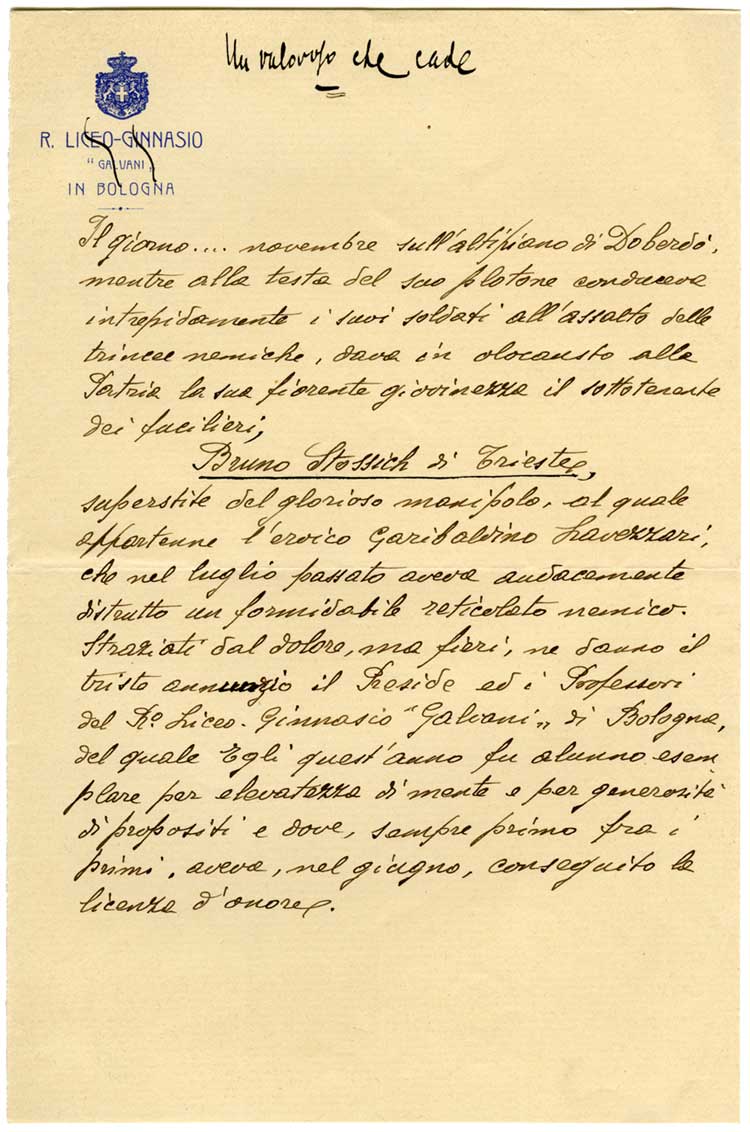 Un valoroso che cade
R. LICEO-GINNASIO
"GALVANI„
IN BOLOGNA
Il giorno.... novembre sull'altipiano di Doberdò,
mentre alla testa del suo plotone conduceva
intrepidamente i suoi soldati all'assalto delle
trincee nemiche, dava in olocausto alla
Patria la sua fiorente giovinezza il sottotenente
dei fucilieri,
Bruno Stossich di Trieste,
superstite del glorioso manipolo, al quale
appartenne l'eroico Garibaldino Lavezzari,
che nel luglio passato aveva audacemente
distrutto un formidabile reticolato nemico.
Straziati dal dolore, ma fieri, ne danno il
triste annunzio il Preside ed i Professori
del R.º Liceo-Ginnasio "Galvani„ di Bologna,
del quale Egli quest'anno fu alunno esem
plare per elevatezza di mente e per generosità
di propositi e dove, sempre primo fra i
primi, aveva, nel giugno, conseguito la
licenza d'onore.